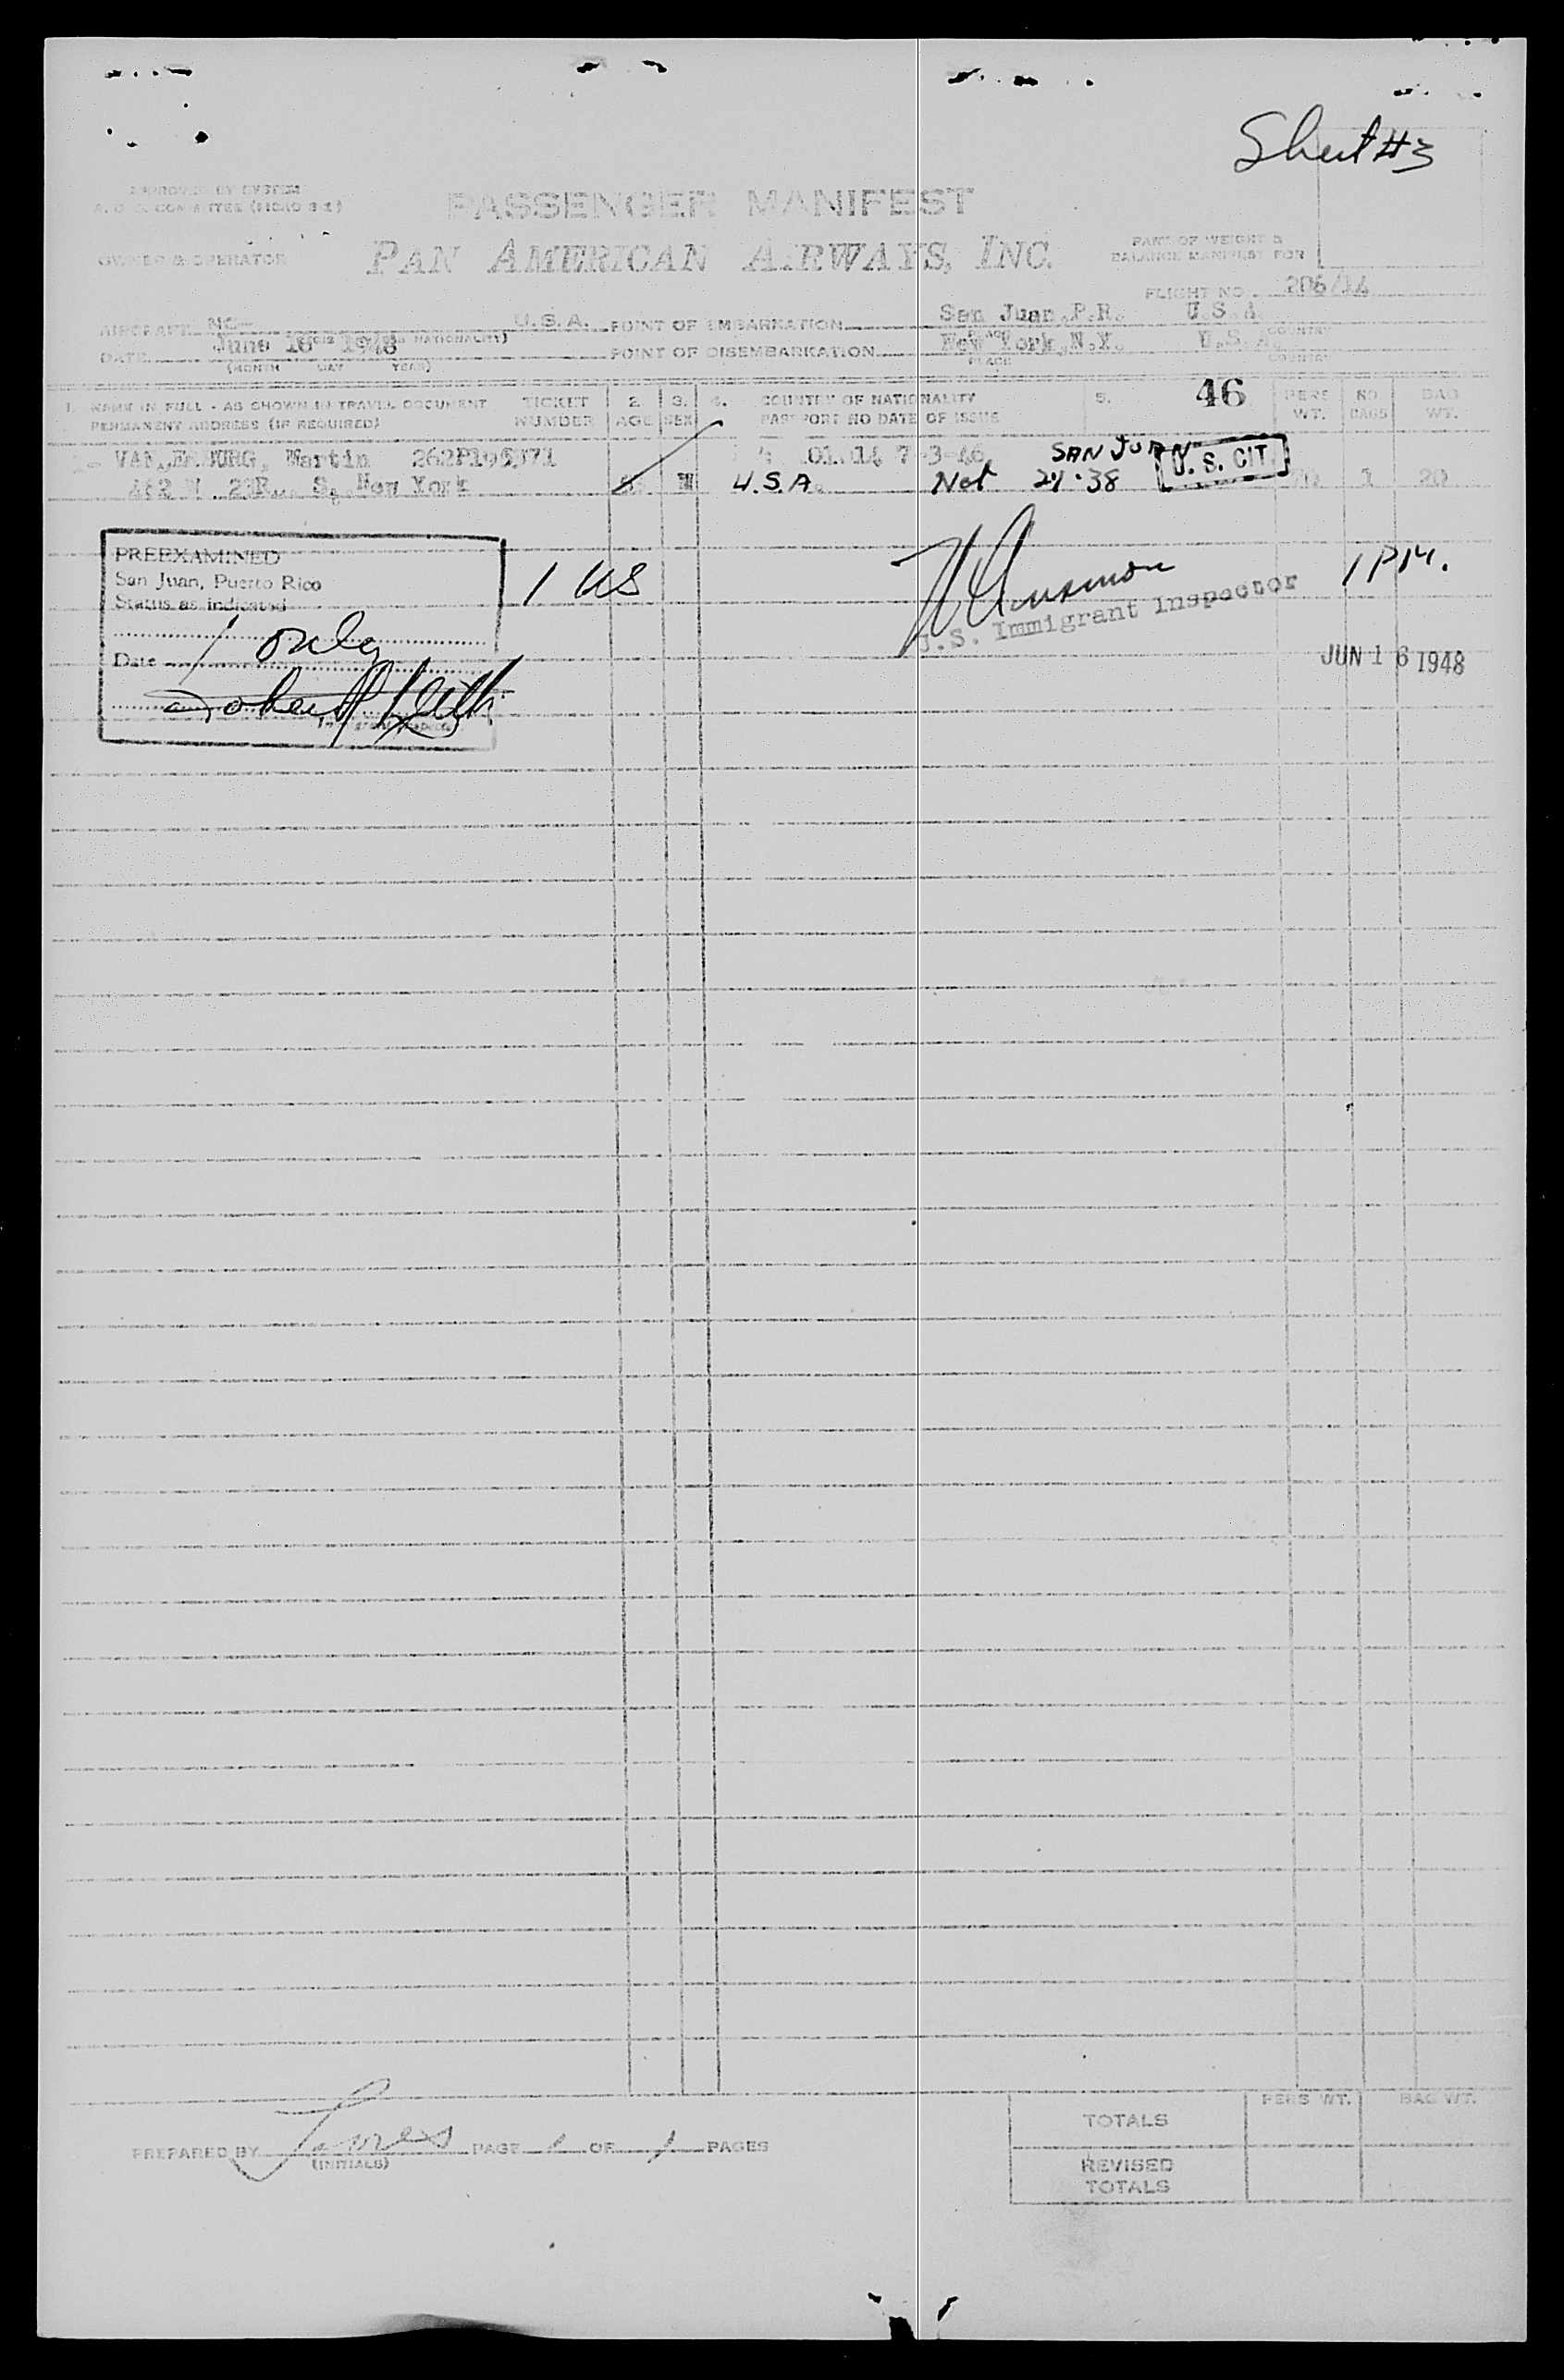 Sheet #3
APPROVED BY SYSTEM
PASSENGER MANIFEST
OWNER & OPERATOR PAN AMERICAN AIRWAYS, INC.
PART OF WEIGHT &
BALANCE MANIFEST FOR
FLIGHT NO. 206/14
AIRCRAFT NC- U.S.A. POINT OF EMBARKATION San Juan, P.R. U.S.A.
DATE June 16 1948 POINT OF DISEMBARKATION New York, N.Y. U.S.A.
(MONTH DAY YEAR) PLACE COUNTRY
1. NAME IN FULL - AS SHOWN IN TRAVEL DOCUMENT TICKET 2. 3. 4. COUNTRY OF NATIONALITY 5. 46 PERS NO BAG
PERMANENT ADDRESS (IF REQUIRED) NUMBER AGE SEX PASSPORT NO DATE OF ISSUE WT. BAGS WT.
Martin SAN JUAN U. S. CIT
New York M U.S.A. Nat 38 1 20
PREEXAMINED
San Juan, Puerto Rico
Status as indicated
1 US
1 only
Date
1 PM.
U.S. Immigrant Inspector
JUN 16 1948
PERS WT. BAG WT.
TOTALS
PREPARED BY PAGE 1 OF 1 PAGES
(INITIALS)
REVISED
TOTALS